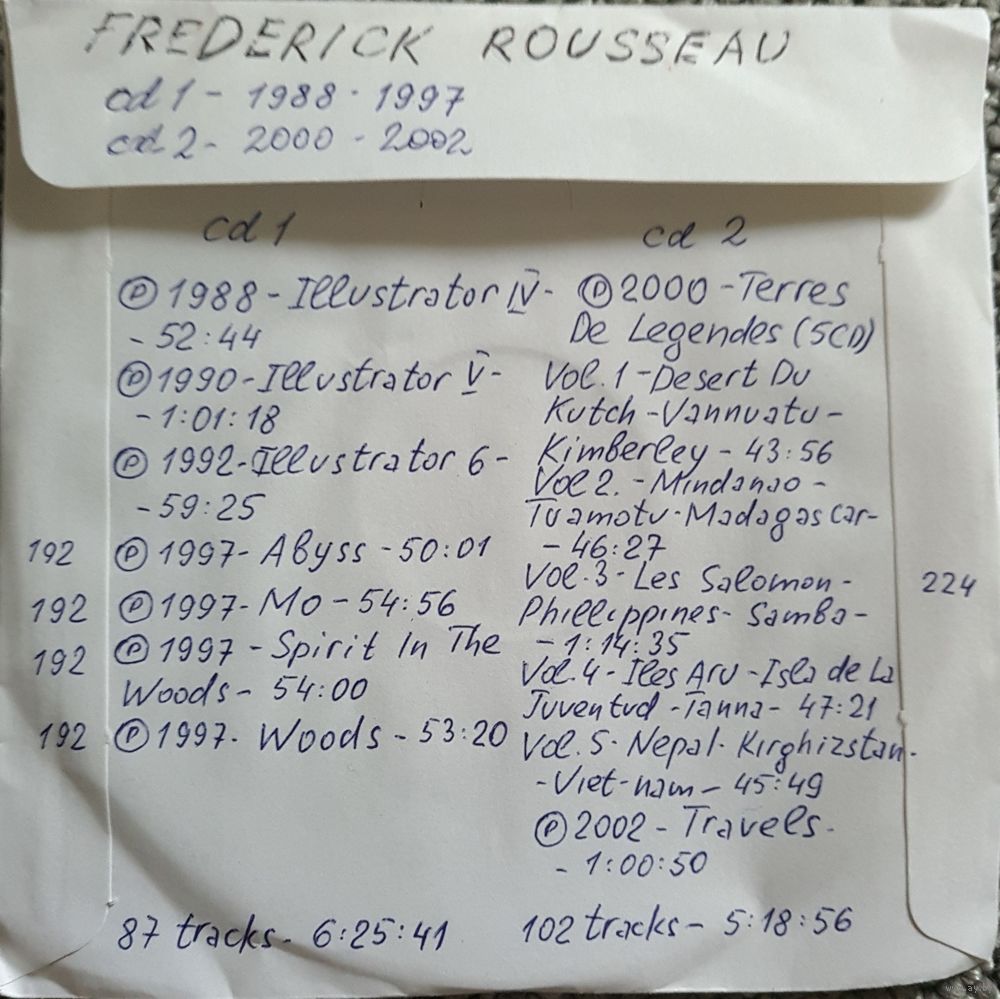 FREDERICK ROUSSEAU
cd 1 - 1988 - 1997
cd 2 - 2000 - 2002
cd 1
Ⓟ 1988 - Illustrator IV -
- 52:44
Ⓟ 1990 - Illustrator V -
- 1:01:18
Ⓟ 1992 - Illustrator 6 -
- 59:25
192 Ⓟ 1997 - Abyss - 50:01
192 Ⓟ 1997 - Mo - 54:56
192 Ⓟ 1997 - Spirit In The
Woods - 54:00
192 Ⓟ 1997 - Woods - 53:20
87 tracks - 6:25:41
cd 2
Ⓟ 2000 - Terres
De Legendes (5CD)
Vol. 1 - Desert Du
Kutch - Vannuatu -
Kimberley - 43:56
Vol 2. - Mindanao -
Tuamotu - Madagascar -
- 46:27
Vol. 3 - Les Salomon -
Phillippines - Samba -
- 1:14:35
224
Vol. 4 - Iles Aru - Isla de La
Juventud - Tanna - 47:21
Vol. 5 - Nepal - Kirghizstan -
- Viet-nam - 45:49
Ⓟ 2002 - Travels -
- 1:00:50
102 tracks - 5:18:56